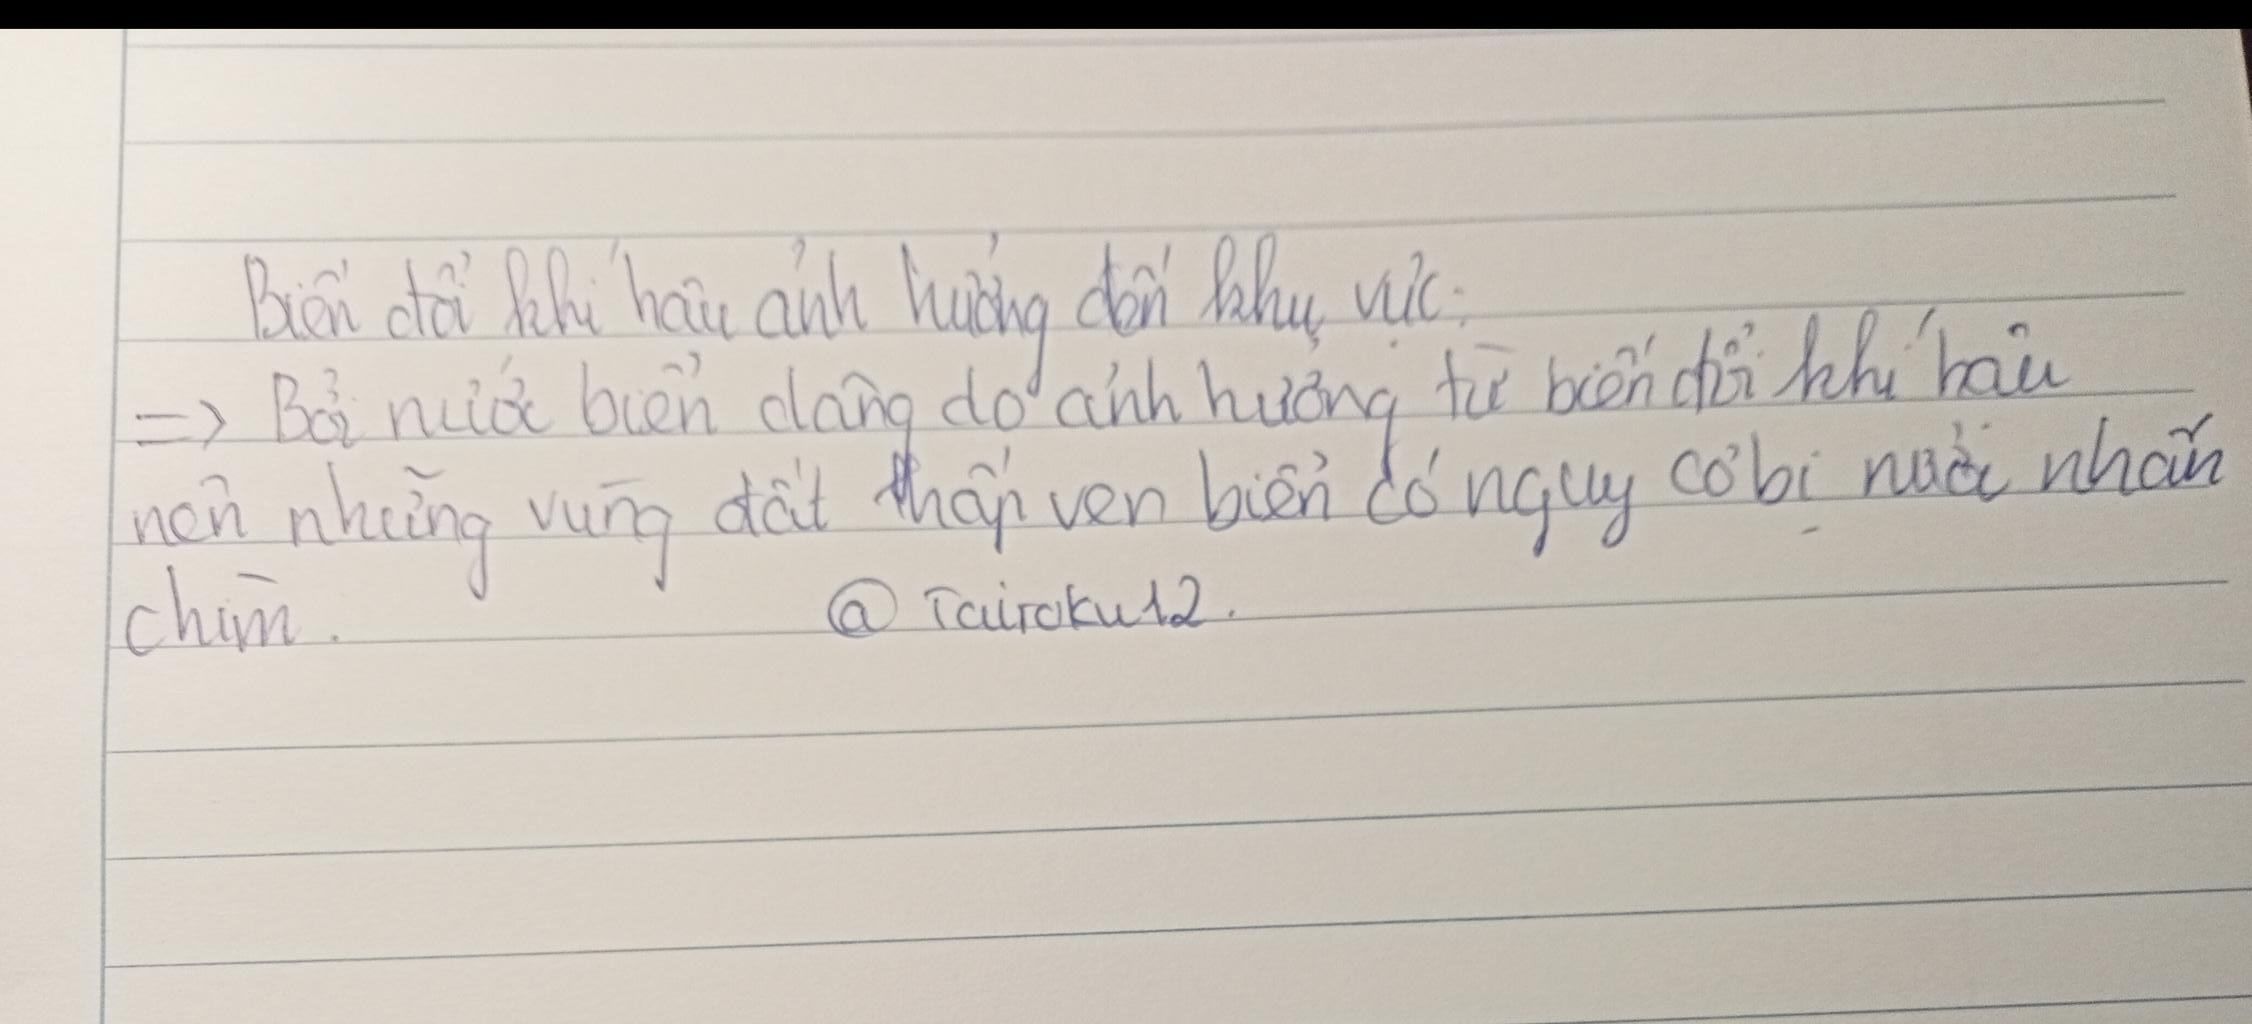 Biến đổi khí hậu ảnh hưởng đến khu vực:
=> Bởi nước biển dâng do ảnh hưởng từ biến đổi khí hậu
nên những vùng đất thấp ven biển có nguy cơ bị nước nhấn
chìm. @Tairoku12.